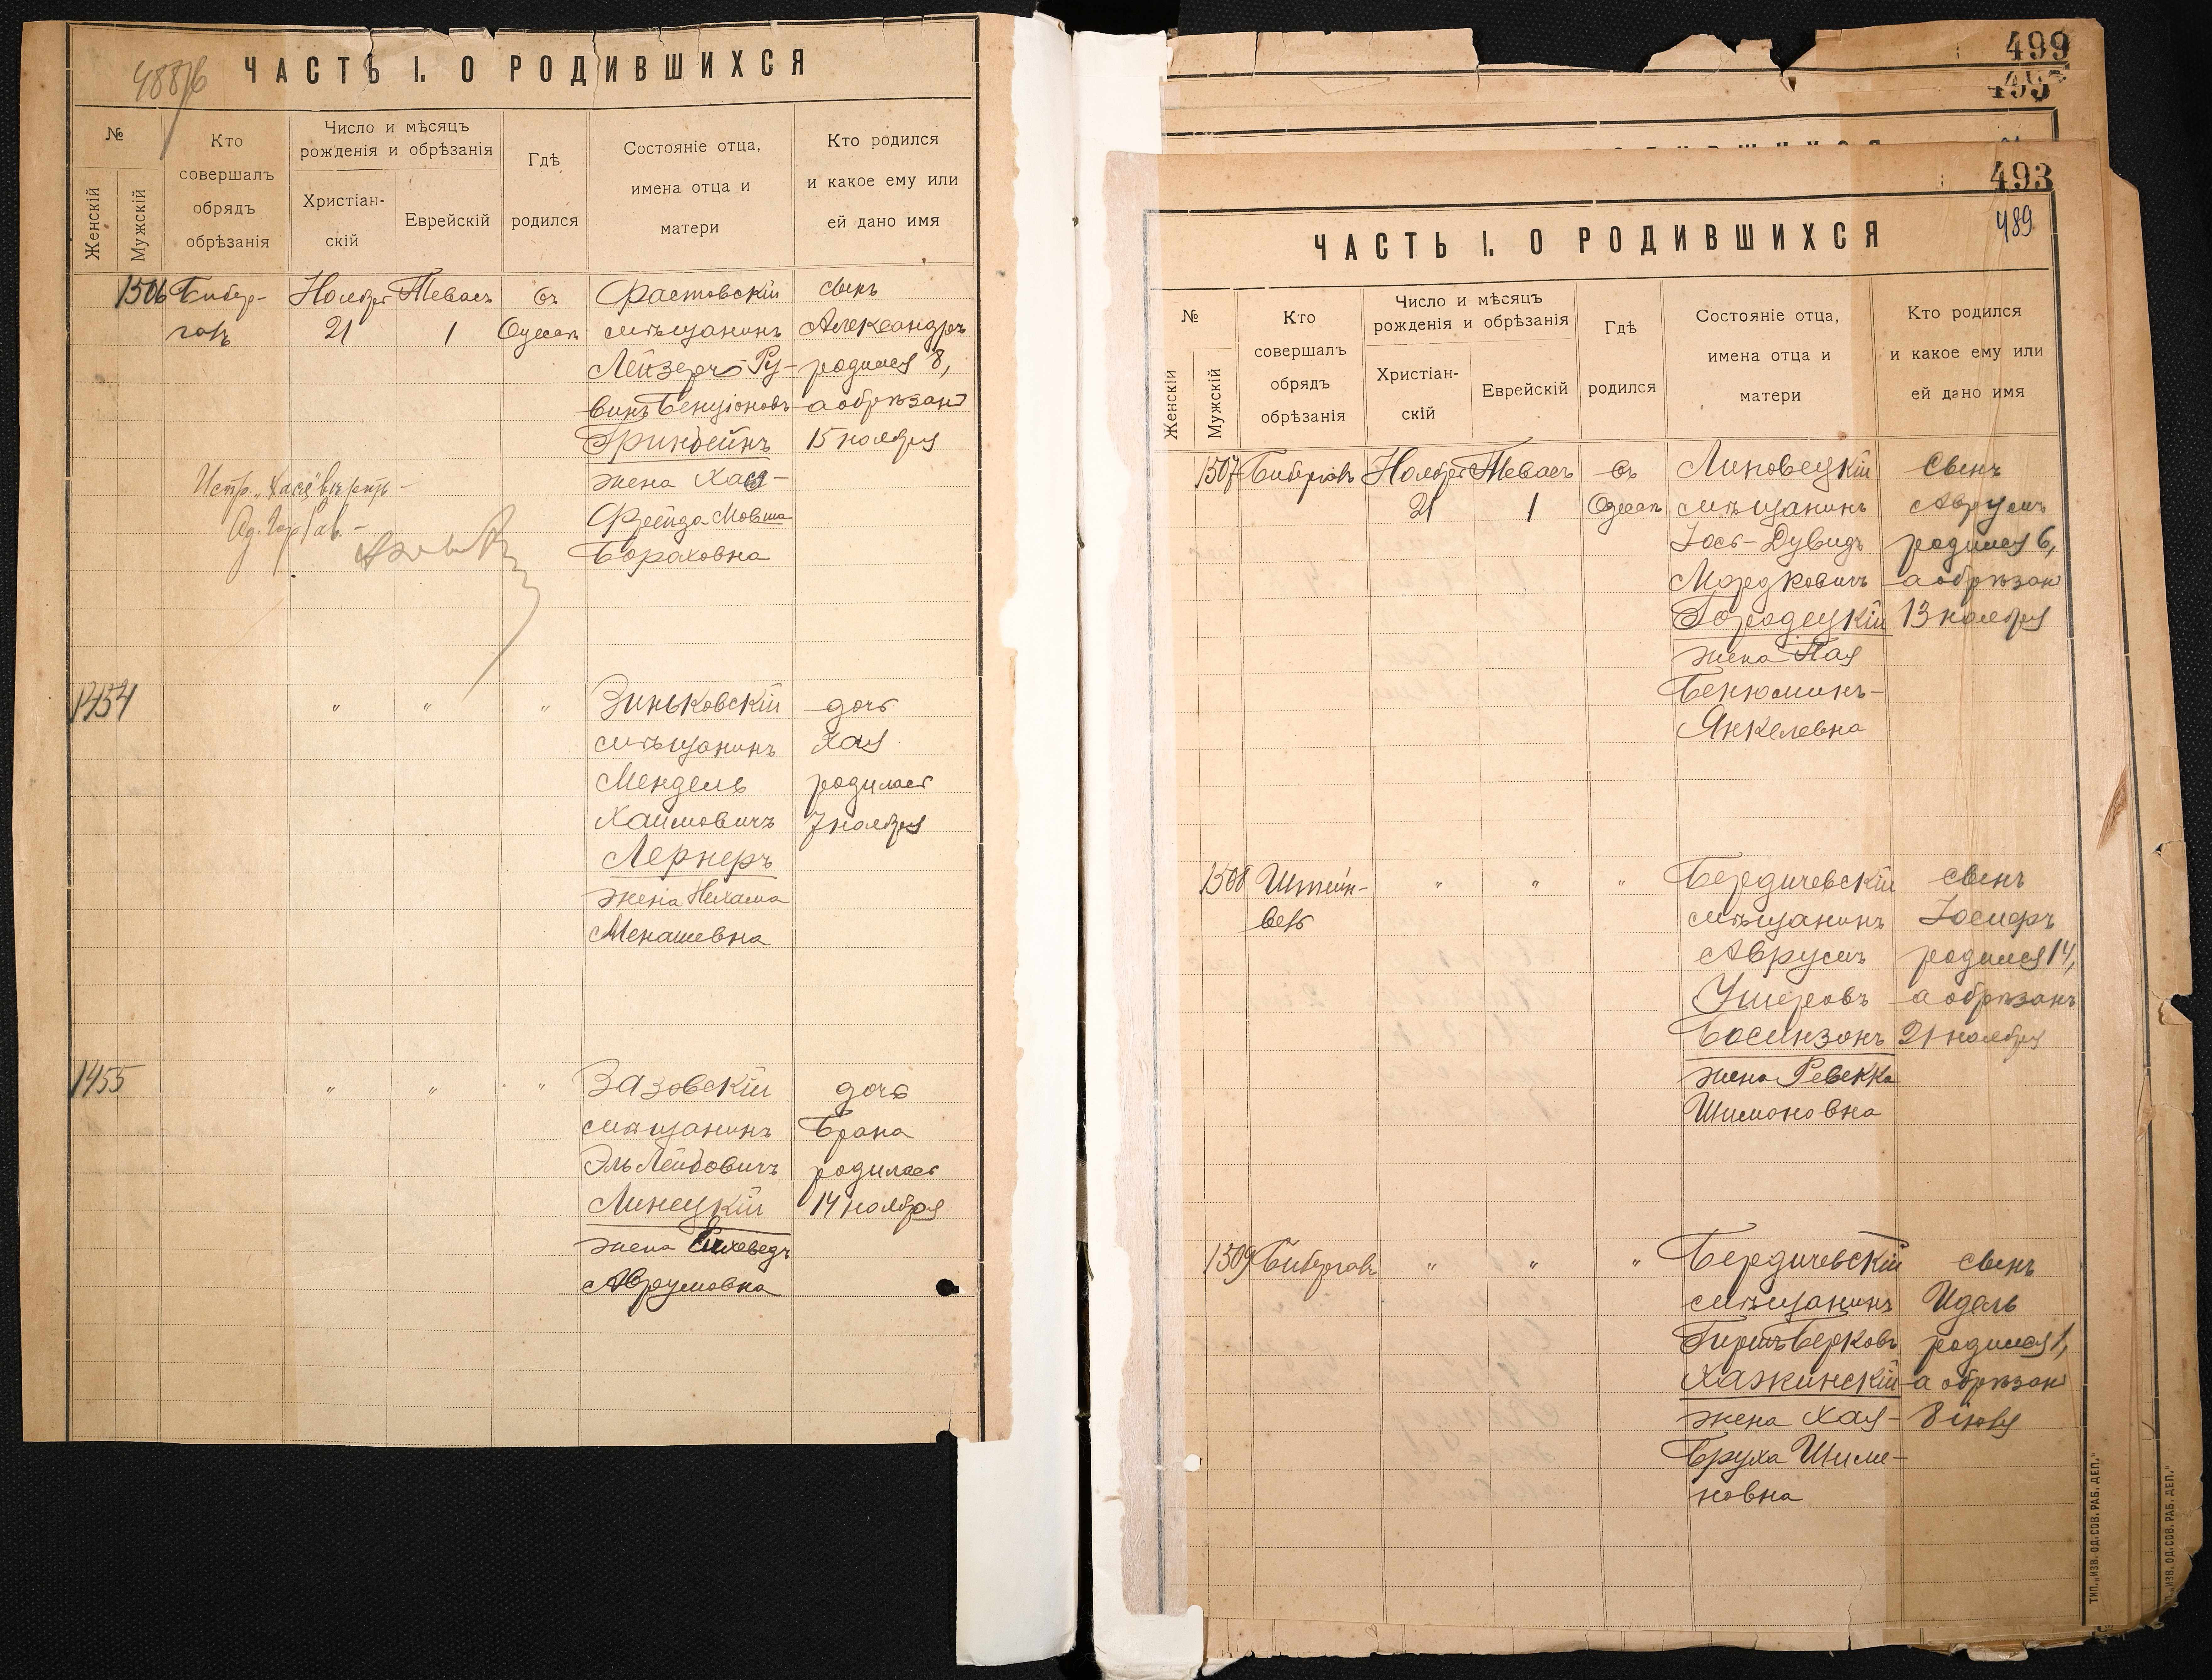 488/б
ЧАСТЬ I. О РОДИВШИХСЯ
№
Женскій
Мужскій
Кто
совершалъ
обрядъ
обрѣзанія
Число и мѣсяцъ
рожденія и обрѣзанія
Христіан-
скій
Еврейскій
Гдѣ
родился
Состояніе отца,
имена отца и
матери
Кто родился
и какое ему или
ей дано имя
1506
Бибер-
галь
Ноября
21
Тевасъ
1
въ
Одессѣ
Фастовскій
мѣщанинъ
Лейзеръ Ру-
винъ Бенціоновъ
Гринвейнъ
жена Хася-
Фрейда Мовша
Бораховна
сынъ
Александръ
родился 8,
а обрѣзанъ
15 ноября
Испр. „Хася" вѣрно
1454
"
"
"
Зиньковскій
мѣщанинъ
Мендель
Хаимовичъ
Лернеръ
жена Нехама
Менашевна
дочь
Хая
родилась
7 ноября
1455
"
"
"
Зазовскій
мѣщанинъ
Эль Лейбовичъ
Линецкій
жена
Аврумовна
дочь
Брана
родилась
14 ноября
499
495
493
489
ЧАСТЬ I. О РОДИВШИХСЯ
№
Женскій
Мужскій
Кто
совершалъ
обрядъ
обрѣзанія
Число и мѣсяцъ
рожденія и обрѣзанія
Христіан-
скій
Еврейскій
Гдѣ
родился
Состояніе отца,
имена отца и
матери
Кто родился
и какое ему или
ей дано имя
1507
Бибергаль
Ноября
21
Тевасъ
1
въ
Одессѣ
Липовецкій
мѣщанинъ
Іось-Дувидъ
Мордковичъ
Городецкій
жена Пая
Бенюминъ-
Янкелевна
сынъ
Аврумъ
родился 6,
а обрѣзанъ
13 ноября
1508
Штейн-
вейс
"
"
"
Бердичевскій
мѣщанинъ
Аврумъ
Ушеровъ
Босинзонъ
жена Ревекка
Шимоновна
сынъ
Іосифъ
родился 14,
а обрѣзанъ
21 ноября
1509
Бибергаль
"
"
"
Бердичевскій
мѣщанинъ
Гиршъ Берковъ
Хажинскій
жена Хая-
Бруха Шиме-
новна
сынъ
Идель
родился 1,
а обрѣзанъ
8 іюля
ТИП. „ИЗВ. ОД. СОВ. РАБ. ДЕП."
„ИЗВ. ОД. СОВ. РАБ. ДЕП."